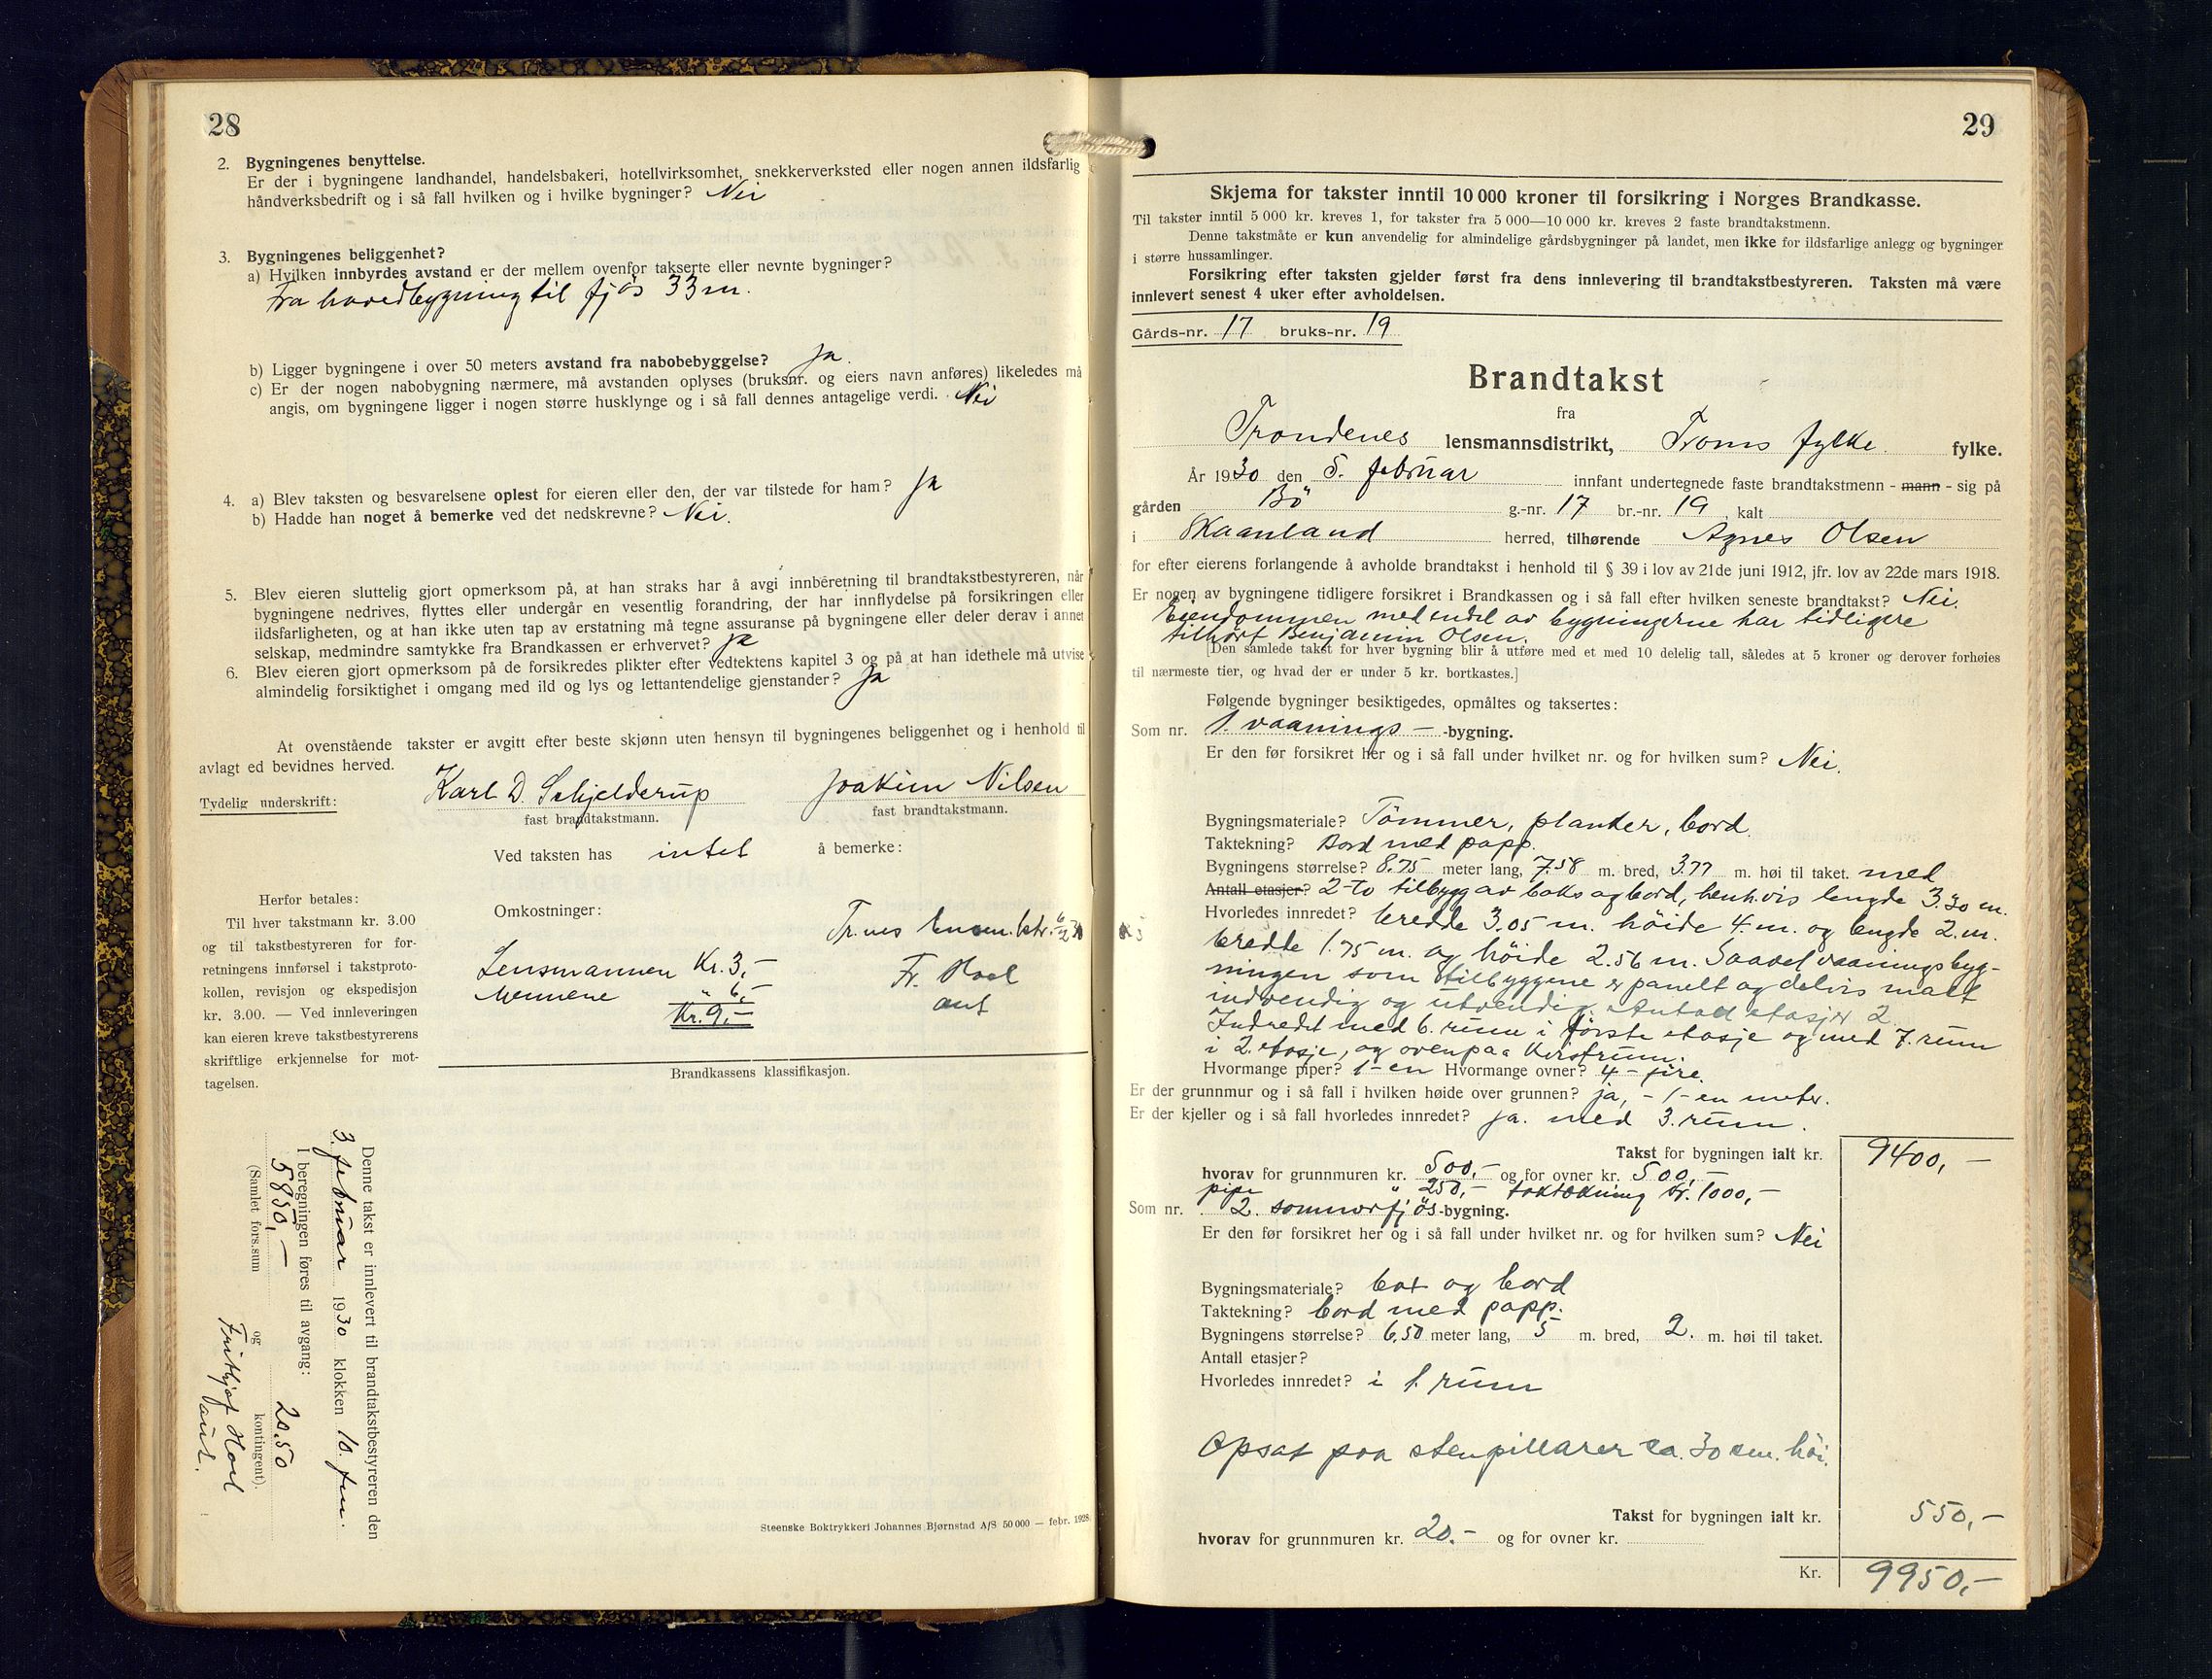 28
2. Bygningenes benyttelse.
Er der i bygningene landhandel, handelsbakeri, hotellvirksomhet, snekkerverksted eller nogen annen ildsfarlig
håndverksbedrift og i så fall hvilken og i hvilke bygninger? Nei
3. Bygningenes beliggenhet?
a) Hvilken innbyrdes avstand er der mellem ovenfor takserte eller nevnte bygninger?
Fra hovedbygning til fjös 33 m.
b) Ligger bygningene i over 50 meters avstand fra nabobebyggelse? Ja.
c) Er der nogen nabobygning nærmere, må avstanden oplyses (bruksnr. og eiers navn anføres) likeledes må
angis, om bygningene ligger i nogen større husklynge og i så fall dennes antagelige verdi. Nei
4. a) Blev taksten og besvarelsene oplest for eieren eller den, der var tilstede for ham? Ja
b) Hadde han noget å bemerke ved det nedskrevne? Nei.
5. Blev eieren sluttelig gjort opmerksom på, at han straks har å avgi innberetning til brandtakstbestyreren, når
bygningene nedrives, flyttes eller undergår en vesentlig forandring, der har innflydelse på forsikringen eller
ildsfarligheten, og at han ikke uten tap av erstatning må tegne assuranse på bygningene eller deler derav i annet
selskap, medmindre samtykke fra Brandkassen er erhvervet? Ja
6. Blev eieren gjort opmerksom på de forsikredes plikter efter vedtektens kapitel 3 og på at han idethele må utvise
almindelig forsiktighet i omgang med ild og lys og lettantendelige gjenstander? Ja
At ovenstående takster er avgitt efter beste skjønn uten hensyn til bygningenes beliggenhet og i henhold til
avlagt ed bevidnes herved.
Tydelig underskrift: Karl D. Schjelderup Joakim Nilsen
fast brandtakstmann. fast brandtakstmann.
Ved taksten has intet å bemerke:
Herfor betales:
Til hver takstmann kr. 3.00
og til takstbestyreren for for-
retningens innførsel i takstproto-
kollen, revisjon og ekspedisjon
kr. 3.00. — Ved innleveringen
kan eieren kreve takstbestyrerens
skriftlige erkjennelse for mot-
tagelsen.
Omkostninger:
Lensmannen Kr. 3,-
Mennene " 6,-
Kr. 9,-
Fr. Hoel
aut
Brandkassens klassifikasjon.
Denne takst er innlevert til brandtakstbestyreren den
3. februar 1930 klokken 10. fm.
I beregningen føres til avgang:
5850,- 20.50
(Samlet fors.sum og kontingent).
Frithjof Hoel
aut.
Steenske Boktrykkeri Johannes Bjørnstad A/S 50 000 — febr. 1928.
29
Skjema for takster inntil 10 000 kroner til forsikring i Norges Brandkasse.
Til takster inntil 5 000 kr. kreves 1, for takster fra 5 000—10 000 kr. kreves 2 faste brandtakstmenn.
Denne takstmåte er kun anvendelig for almindelige gårdsbygninger på landet, men ikke for ildsfarlige anlegg og bygninger
i større hussamlinger.
Forsikring efter taksten gjelder først fra dens innlevering til brandtakstbestyreren. Taksten må være
innlevert senest 4 uker efter avholdelsen.
Gårds-nr. 17 bruks-nr. 19
Brandtakst
fra
Trondenes lensmannsdistrikt, Troms fylke. fylke.
År 1930 den 5. februar innfant undertegnede faste brandtakstmenn - mann - sig på
gården Bö g.-nr. 17 br.-nr. 19, kalt
i Skaanland herred, tilhørende Agnes Olsen
for efter eierens forlangende å avholde brandtakst i henhold til § 39 i lov av 21de juni 1912, jfr. lov av 22de mars 1918.
Er nogen av bygningene tidligere forsikret i Brandkassen og i så fall efter hvilken seneste brandtakst? Nei.
Eiendommen med endel av bygningerne har tidligere
tilhört Benjamin Olsen.
[Den samlede takst for hver bygning blir å utføre med et med 10 delelig tall, således at 5 kroner og derover forhøies
til nærmeste tier, og hvad der er under 5 kr. bortkastes.]
Følgende bygninger besiktigedes, opmåltes og taksertes:
Som nr. 1. vaanings- -bygning.
Er den før forsikret her og i så fall under hvilket nr. og for hvilken sum? Nei.
Bygningsmateriale? Tömmer, planker, bord.
Taktekning? Bord med papp.
Bygningens størrelse? 8.75 meter lang, 7.58 m. bred, 3.77 m. høi til taket. med
Antall etasjer? 2-to tilbygg av boks og bord, henh.vis lengde 3.30 m.
Hvorledes innredet? bredde 3.05 m. höide 4. m. og lengde 2. m.
bredde 1.75 m. og höide 2.56 m. Saavel vaaningsbyg-
ningen som tilbyggene er panelt og delvis malt
indvendig og utvendig. Antall etasjer 2.
Indredet med 6. rum i förste etasje og med 7. rum
i 2. etasje, og ovenpaa Kvistrum.
Hvormange piper? 1- en Hvormange ovner? 4- fire.
Er der grunnmur og i så fall i hvilken høide over grunnen? ja, - 1- en meter.
Er der kjeller og i så fall hvorledes innredet? ja. med 3. rum.
Takst for bygningen ialt kr. 9400,-
hvorav for grunnmuren kr. 500,- og for ovner kr. 500,-
pipe " 250,- taktækning kr. 1000,-
Som nr. 2. sommerfjös -bygning.
Er den før forsikret her og i så fall under hvilket nr. og for hvilken sum? Nei
Bygningsmateriale? box og bord
Taktekning? bord med papp.
Bygningens størrelse? 6,50 meter lang, 5 m. bred, 2. m. høi til taket.
Antall etasjer?
Hvorledes innredet? i 1. rum
Opsat paa stenpillarer ca. 30 cm. höi.
Takst for bygningen ialt kr. 550,-
hvorav for grunnmuren kr. 20.- og for ovner kr.
Kr. 9950,-